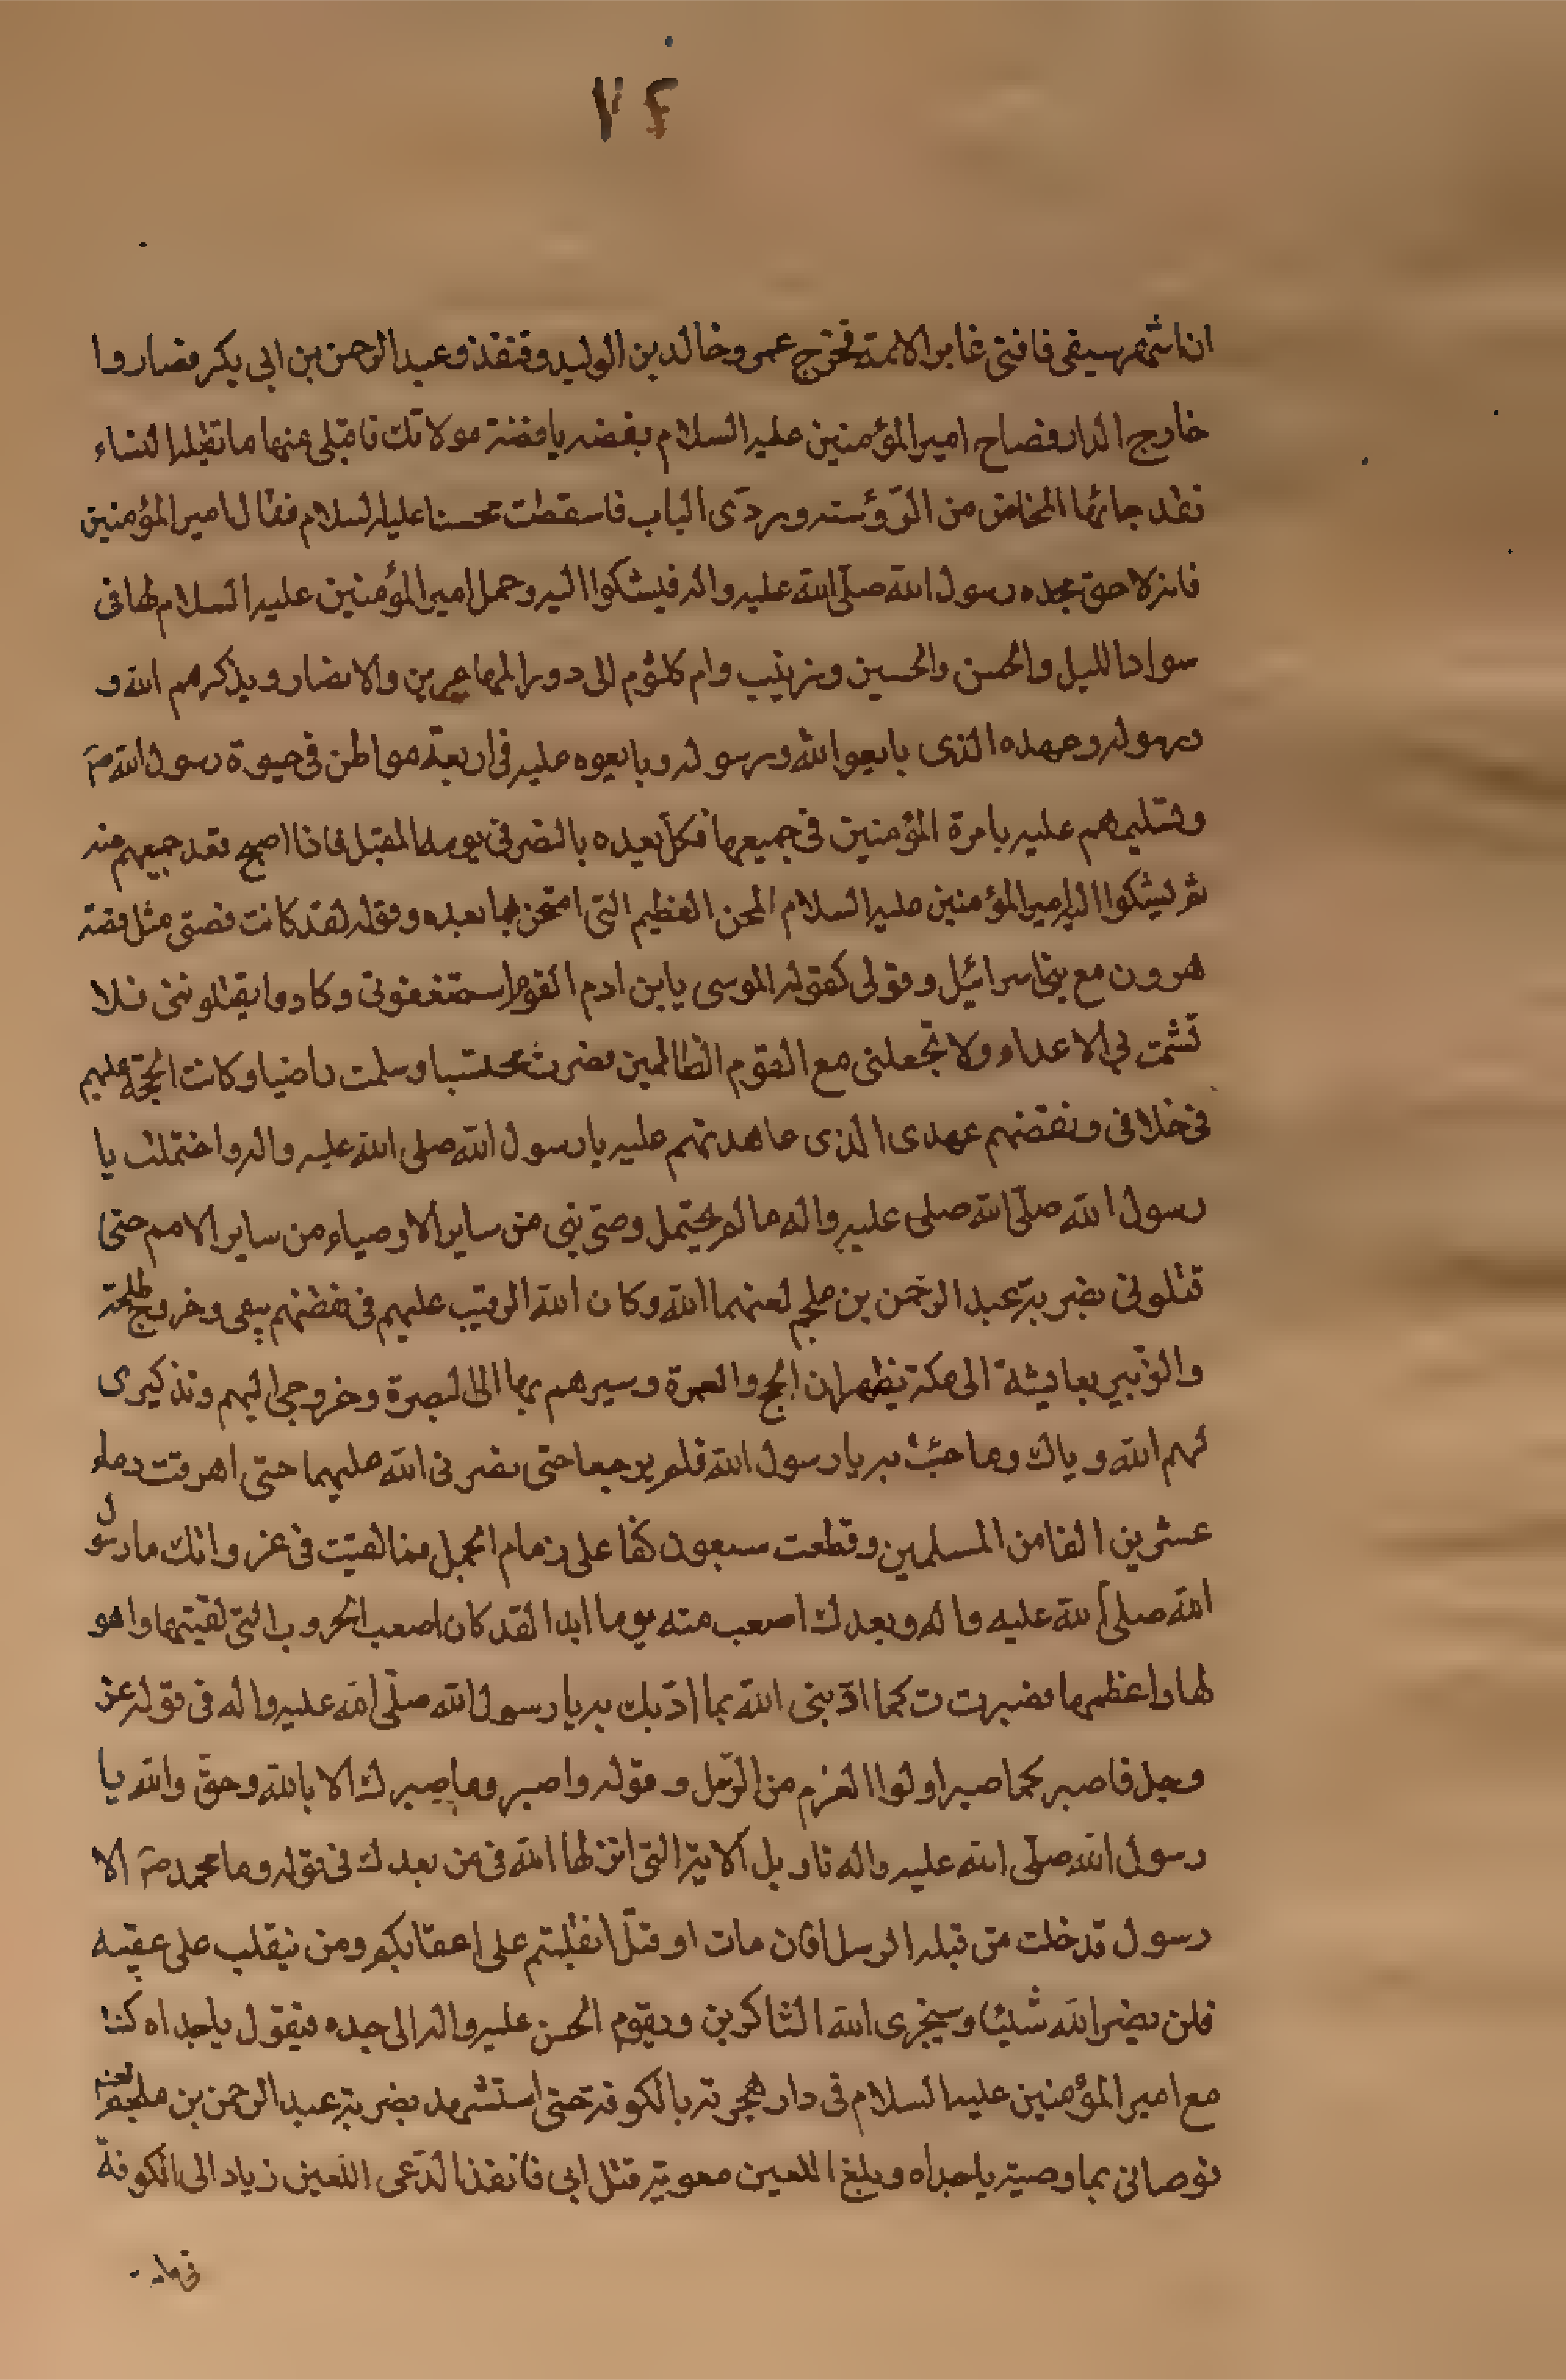 ٧٤
ان اشهر سيفى فافنى غابر الامة فخرج عمر وخالد بن الوليد وقنفذ وعبد الرحمن بن ابى بكر فصاروا
خارج الدار فصاح امير المؤمنين عليه السلام بفضه يا فضة مولاتك فاقبلى منها ما تقبله النساء
فقد جائها المخاض من الرفسة ورد الباب فاسقطت محسنا عليه السلام فقال امير المؤمنين
فانه لاحق بجده رسول الله صلّى الله عليه واله فيشكوا اليه وحمل امير المؤمنين عليه السلام لها فى
سواد الليل والحسن والحسين وزينب وام كلثوم الى دور المهاجرين والانصار ويذكرهم الله و
ورسوله وعهده الذى بايعوا الله ورسوله وبايعوه عليه فى اربعة مواطن فى حيوة رسول الله صّ
وتسليمهم عليه بامرة المؤمنين فى جميعها فكل يعده بالنصر فى يومه المقبل فاذا اصبح قعد جميعهم عنه
ثم ليشكوا اليه امير المؤمنين عليه السلام المحن العظيم التى امتحن بها بعده وقوله لقد كانت قصتى مثل قصة
هرون مع بنى اسرائيل وقولى كقوله لموسى يابن ادم القوم استضعفونى وكادوا يقتلوننى فلا
تشمت بى الاعداء ولا تجعلنى مع القوم الظالمين فصبرت محتسبا وسلمت راضيا وكانت الحجة عليهم
فى خلافى ونقضهم عهدى الذى عاهدتهم عليه يا رسول الله صلى الله عليه واله واحتملت يا
رسول الله صلّى الله صلى عليه واله ما لم يحتمل وصىّ نبى من ساير الاوصياء من ساير الامم حتى
قتلونى بضربة عبد الرحمن بن ملجم لعنهما الله وكان الله الرقيب عليهم فى نقضهم بيعى وخروج طلحة
والزبير بعايشة الى مكة يظهران الحج والعمرة وسيرهم بها الى البصرة وخروجى اليهم وتذكيرى
لهم الله وياك وما جئت به يا رسول الله فلم يرجعا حتى نصرنى الله عليهما حتى اهرقت دماء
عشرين الفا من المسلمين وقطعت سبعون كفا على زمام الجمل فما لقيت فى غزوانك يا رسول
الله صلى الله عليه واله وبعدك اصعب منه يوما ابدا لقد كان اصعب الحروب التى لقيتها واهو
لها واعظمها فصبرت ت كما ادّبنى الله بما ادّبك به يا رسول الله صلّى الله عليه واله فى قوله عز
وجل فاصبر كما صبر اولوا العزم من الرسل وقوله واصبر وما صبرك الا بالله وحق والله يا
رسول الله صلّى الله عليه واله تاويل الاية التى انزلها الله فى من بعدك فى قوله وما محمد صّ الا
رسول قد خلت من قبله الرسل افان مات او قتل انقلبتم على اعقابكم ومن ينقلب على عقبيه
فلن يضر الله شيئا وسيجزى الله الشاكرين ويقوم الحسن عليه واله الى جده فيقول يا جداه كنت
مع امير المؤمنين عليه السلام فى دار هجرته بالكوفة حتى استشهد بضربة عبد الرحمن بن ملجم لعنه
فوصانى بما وصيته يا جداه وبلغ اللعين معوية قتل ابى فانفذ الدعى اللعين زياد الى الكوفة